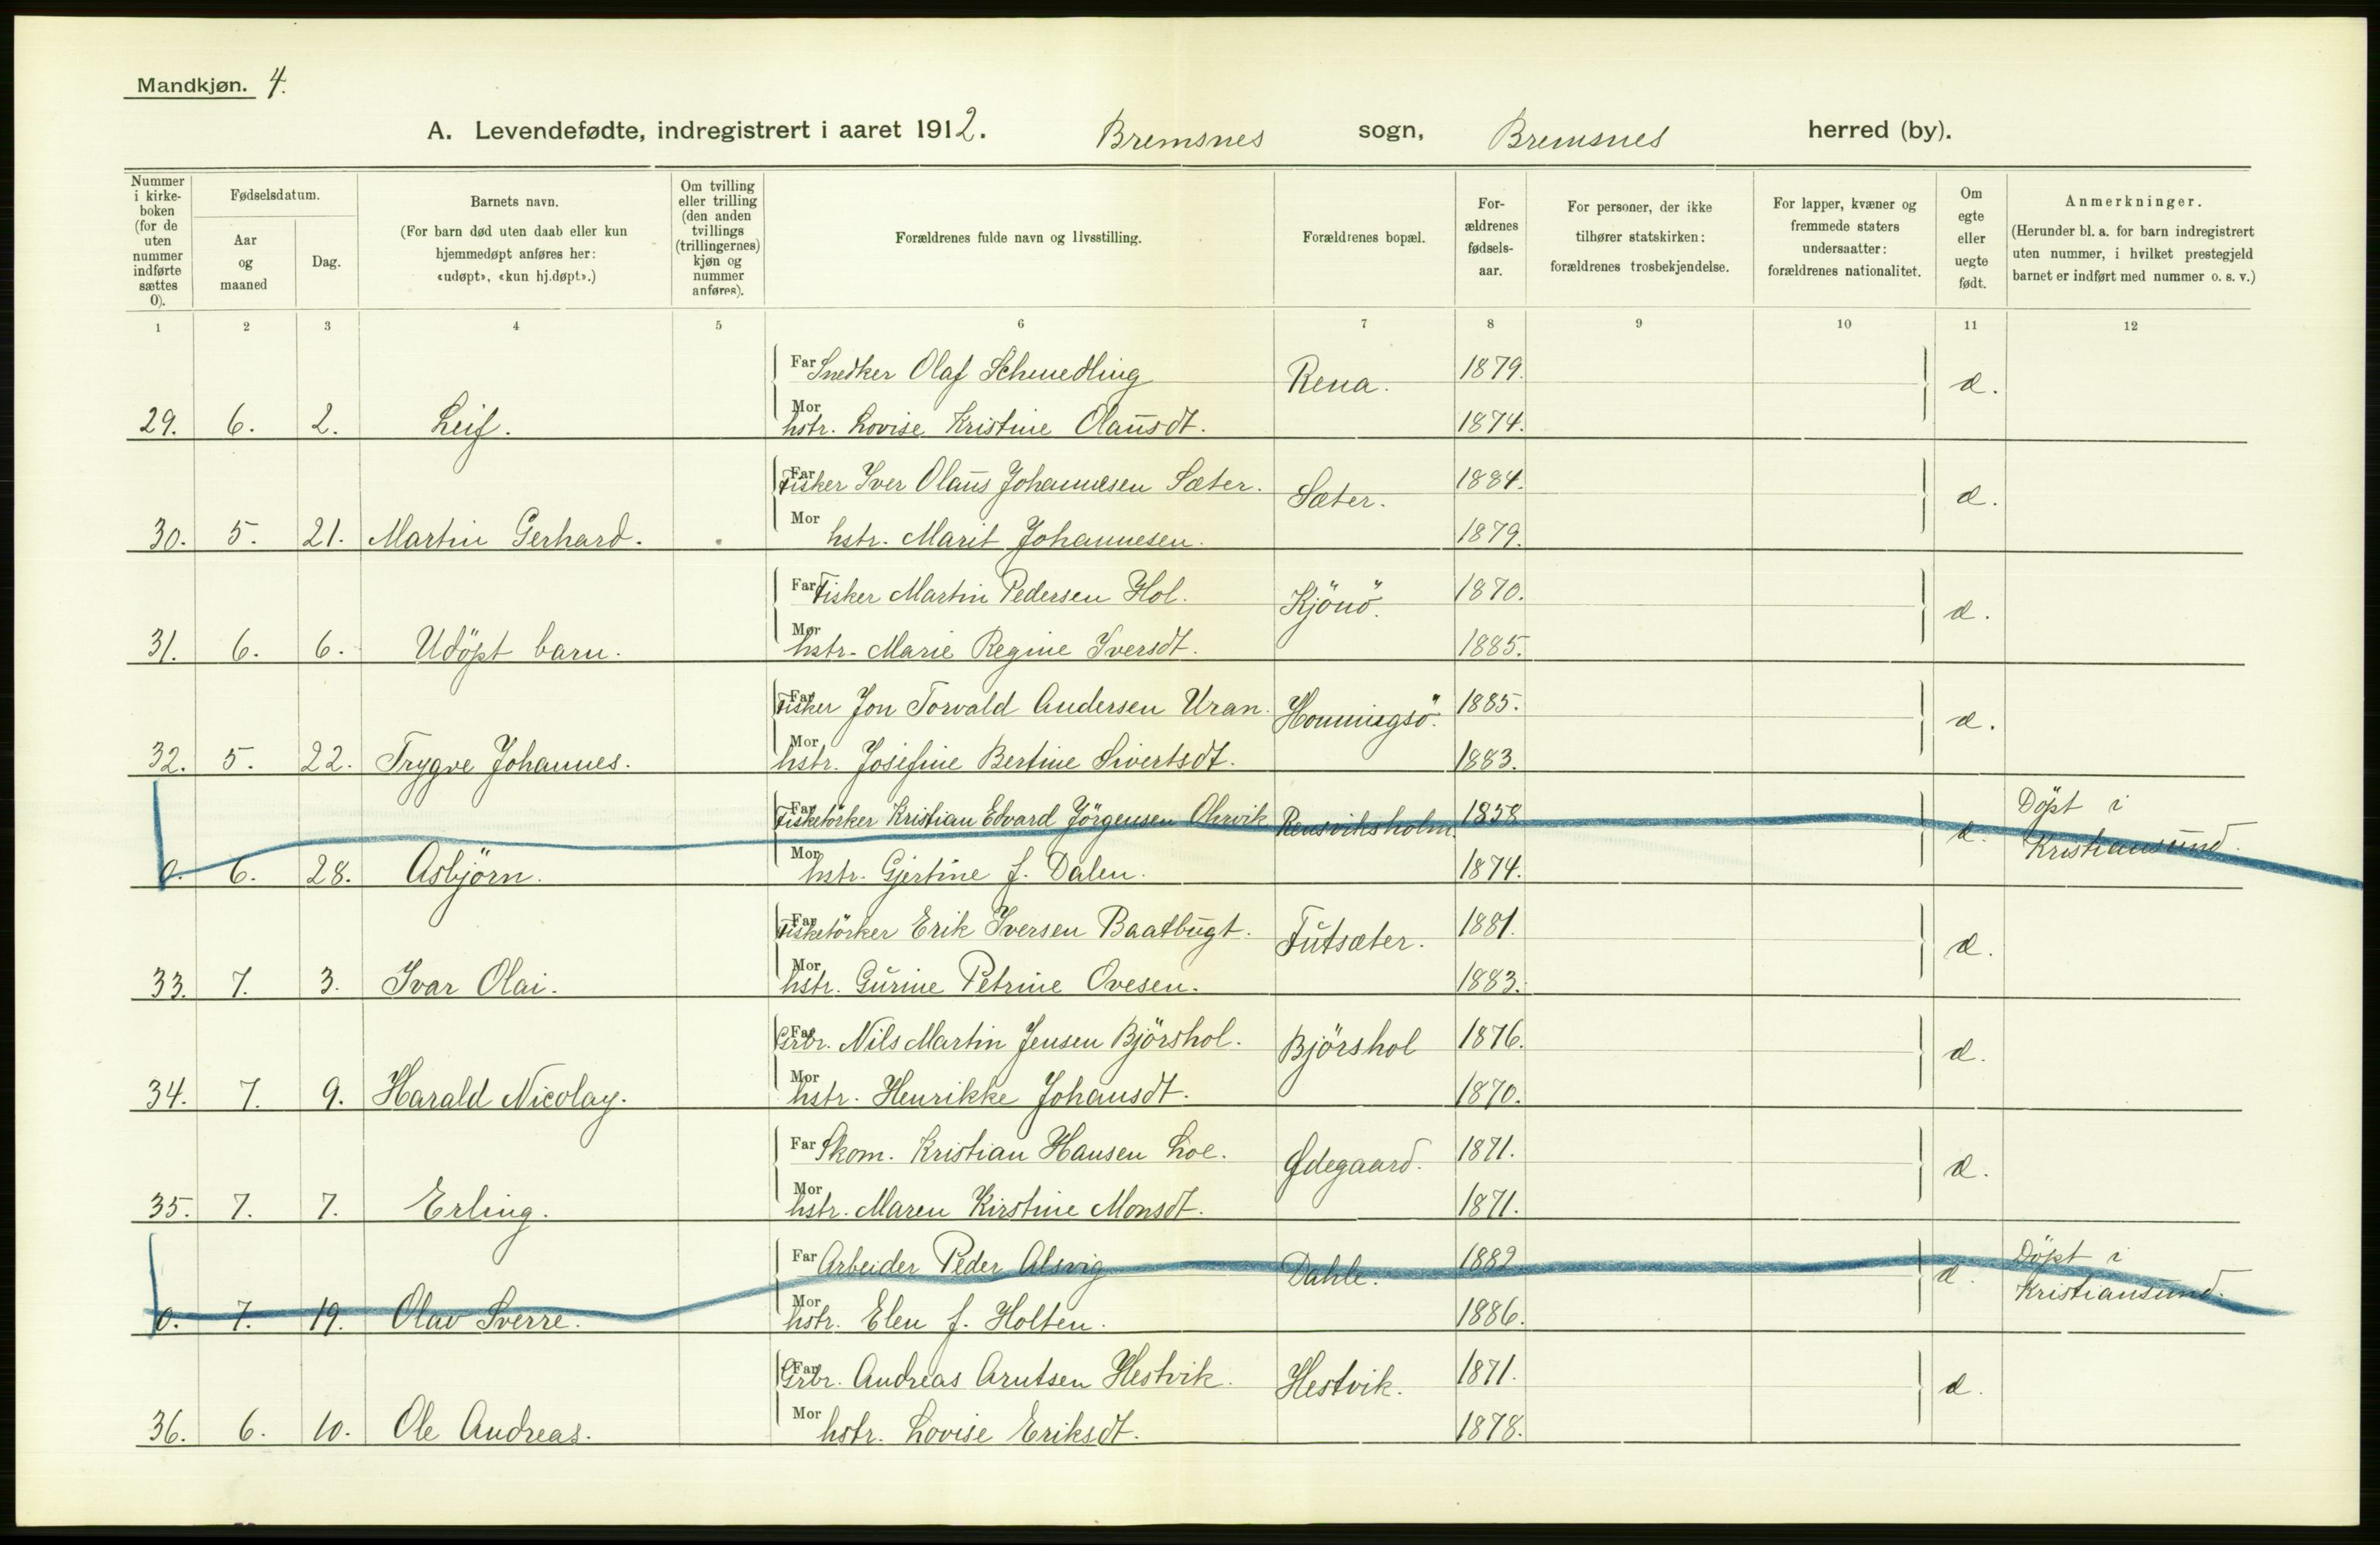 Mandkjøn. 4.
A. Levendefødte, indregistrert i aaret 1912. Bremsnes sogn, Bremsnes herred (by).
Nummer i kirke-boken (for de uten nummer indførte sættes 0).
Fødselsdatum.
Aar og maaned
Dag.
Barnets navn.
(For barn død uten daab eller kun hjemmedøpt anføres her: «udøpt», «kun hj.døpt».)
Om tvilling eller trilling (den anden tvillings (trillingernes) kjøn og nummer anføres).
Forældrenes fulde navn og livsstilling.
Forældrenes bopæl.
For-ældrenes fødsels-aar.
For personer, der ikke tilhører statskirken: forældrenes trosbekjendelse.
For lapper, kvæner og fremmede staters undersaatter: forældrenes nationalitet.
Om egte eller uegte født.
Anmerkninger.
(Herunder bl. a. for barn indregistrert uten nummer, i hvilket prestegjeld barnet er indført med nummer o. s. v.)
1 2 3 4 5 6 7 8 9 10 11 12
Far Snedker Olaf Schmedling Rena. 1879. æ.
29. 6. 2. Leif. Mor hstr. Lovise Kristine Olausdt. 1874.
Far Fisker Iver Olaus Johannesen Sæter. Sæter. 1884. æ.
30. 5. 21. Martin Gerhard. Mor hstr. Marit Johannesen. 1879.
Far Fisker Martin Pedersen Hol. Kjönö. 1870. æ.
31. 6. 6. Udöpt barn. Mor hstr. Marie Regine Iversdt. 1885.
Far Fisker Jon Torvald Andersen Uran. Honningsö. 1885. æ.
32. 5. 22. Trygve Johannes. Mor hstr. Josefine Bertine Sivertsdt. 1883.
Far Fisketörker Kristian Edvard Jörgensen Rensviksholm. 1858 æ. Döpt i Kristiansund.
0. 6. 28. Asbjörn. Mor hstr. Gjertine f. Dalen. 1874.
Far Fisketörker Erik Iversen Baatbugt. Futsæter. 1881. æ.
33. 7. 3. Ivar Olai. Mor hstr. Gurine Petrine Ovesen. 1883.
Far Grbr. Nils Martin Jensen Björshol. Björshol 1876. æ.
34. 7. 9. Harald Nicolay. Mor hstr. Henrikke Johansdt. 1870.
Far Skom. Kristian Hansen Loe. Ødegaard. 1871. æ.
35. 7. 7. Erling. Mor hstr. Maren Kirstine Monsdt. 1871.
Far Arbeider Peder Alsvig Dahle. 1882 æ. Döpt i Kristiansund.
0. 7. 19. Olav Sverre. Mor hstr. Elen f. Holten. 1886.
Far Grbr. Andreas Arntsen Hestvik. Hestvik. 1871. æ.
36. 6. 10. Ole Andreas. Mor hstr. Lovise Eriksdt. 1878.